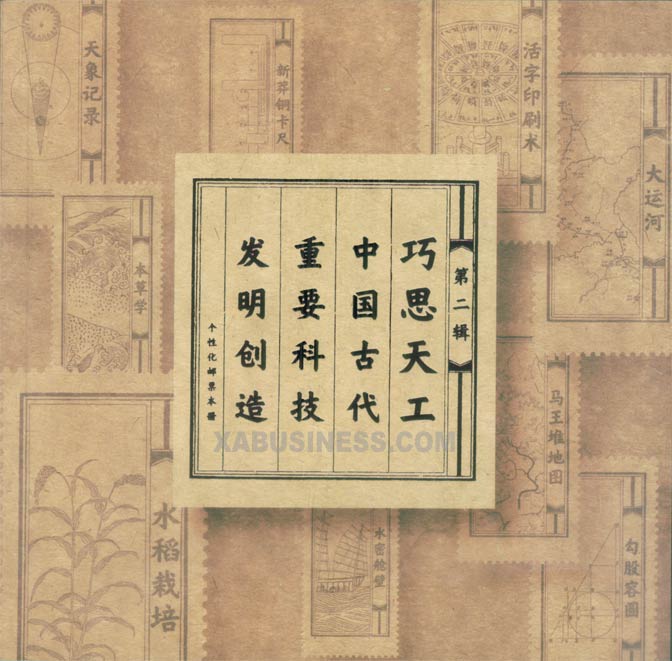 第二辑
巧思天工
中国古代
重要科技
发明创造
个性化邮票本册
XABUSINESS.COM
天象记录
新莽铜卡尺
活字印刷术
大运河
本草学
马王堆地图
水稻栽培
水密舱壁
勾股容圆